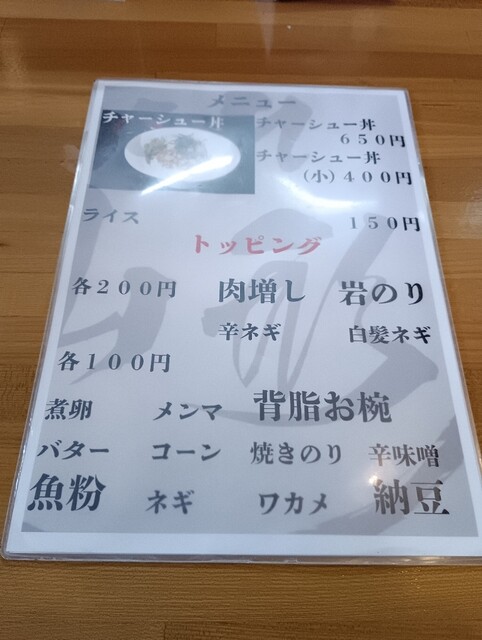 メニュー
チャーシュー丼
チャーシュー丼
６５０円
チャーシュー丼
（小）４００円
ライス １５０円
トッピング
各２００円 肉増し 岩のり
辛ネギ 白髪ネギ
各１００円
煮卵 メンマ 背脂お椀
バター コーン 焼きのり 辛味噌
魚粉 ネギ ワカメ 納豆